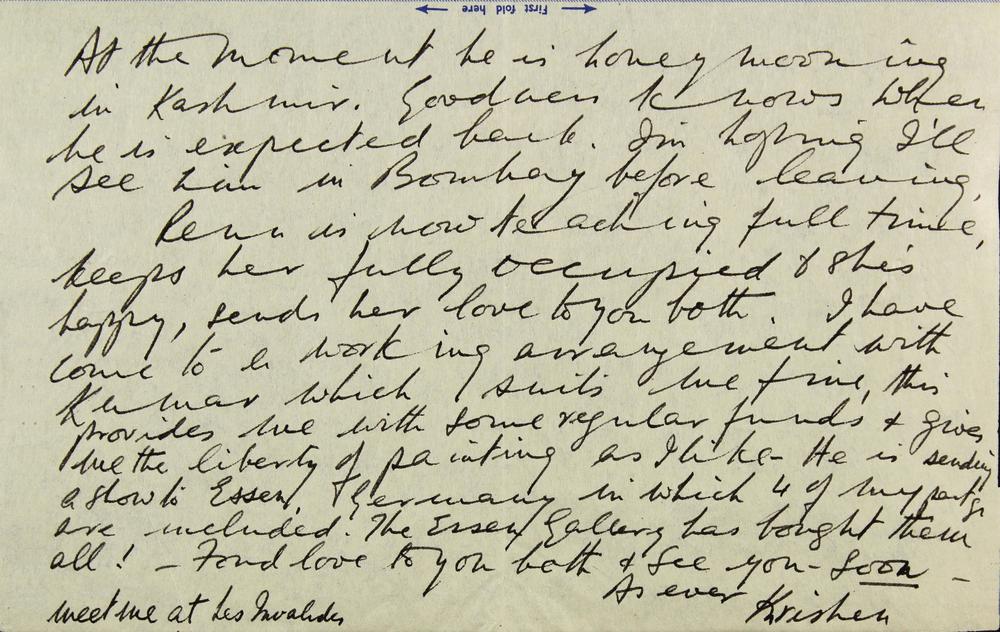 First fold here
At the moment he is honeymooning
in Kashmir. Goodness knows when
he is expected back. I'm hoping I'll
see him in Bombay before leaving.
Renu is now teaching full time,
keeps her fully occupied & she's
happy, sends her love to you both. I have
come to a working arrangement with
Kumar which suits me fine, this
provides me with some regular funds & gives
me the liberty of painting as I like - He is sending
a show to Essen, Germany in which 4 of my ptgs
are included. The Essen Gallery has bought them
all! - Fond love to you both & see you - soon -
As ever
Krishen
meet me at Les Invalides